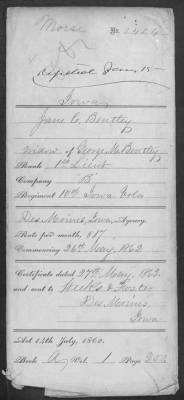 Morse
No. 2424
Expected Jany 15
Iowa,
Jane C. Bentley
widow of George M. Bentley
Rank 1st Lieut
Company "B"
Regiment 10th Iowa Vols
Des Moines, Iowa, Agency.
Rate per month, $17
Commencing 26th May, 1862
Certificate dated 27th May, 1863.
and sent to Weeks & Foster
Des Moines,
Iowa
Act 14th July, 1862.
Book A Vol. 1 Page